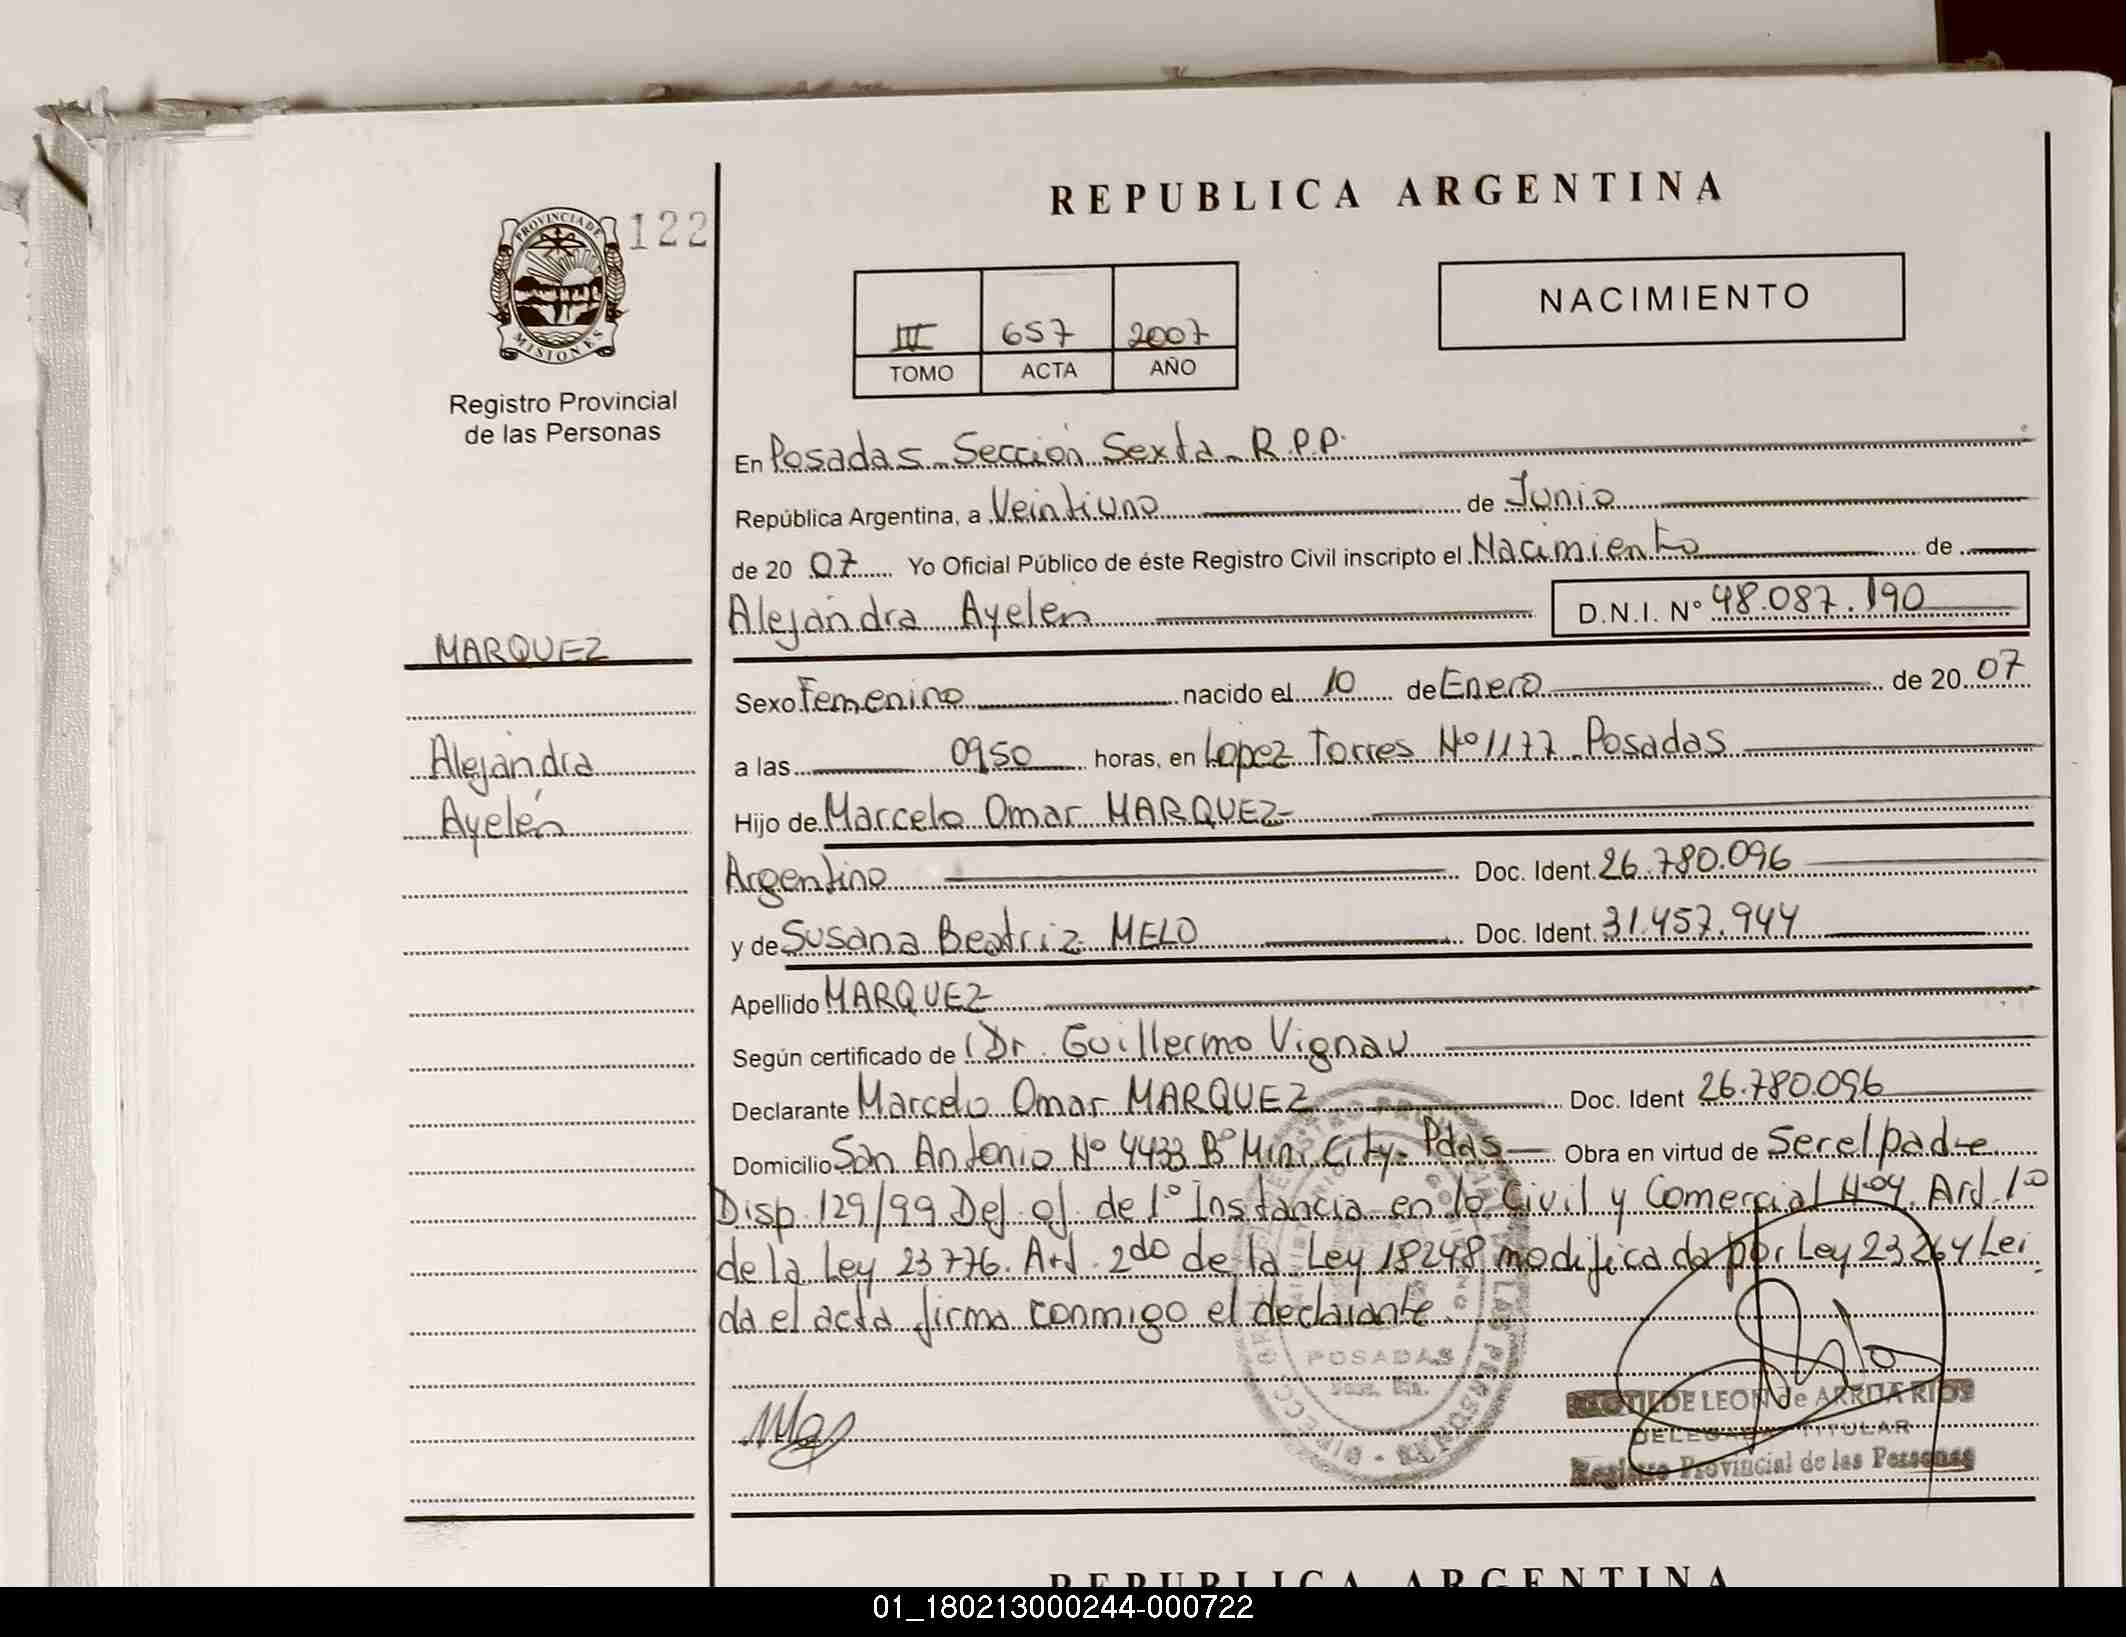 REPUBLICA ARGENTINA
PROVINCIA DE
MISIONES
122
Registro Provincial
de las Personas
III 657 2007
TOMO ACTA AÑO
NACIMIENTO
En Posadas - Sección Sexta - R.P.P.
República Argentina, a Veintiuno de Junio
de 20 07 Yo Oficial Público de éste Registro Civil inscripto el Nacimiento de
Alejandra Ayelen D.N.I. Nº 48.087.190
MARQUEZ
Alejandra
Ayelén
Sexo Femenino nacido el 10 de Enero de 20 07
a las 0950 horas, en Lopez Torres Nº 1177 - Posadas
Hijo de Marcelo Omar MARQUEZ
Argentino Doc. Ident. 26.780.096
y de Susana Beatriz MELO Doc. Ident. 31.457.944
Apellido MARQUEZ
Según certificado de Dr. Guillermo Vignau
Declarante Marcelo Omar MARQUEZ Doc. Ident 26.780.096
Domicilio San Antonio Nº 4433 Bº Mini City - Pdas Obra en virtud de Ser el padre
Disp. 129/99 Def. of. de 1º Instancia en lo Civil y Comercial Nº 04. Art. 1º
de la Ley 23776. Art. 2do de la Ley 18248 modificada por Ley 23264 Lei
da el acta firma conmigo el declarante.
POSADAS
CLOTILDE LEON de ARRUA RIOS
DELEGADA TITULAR
Registro Provincial de las Personas
REPUBLICA ARGENTINA
01_180213000244-000722